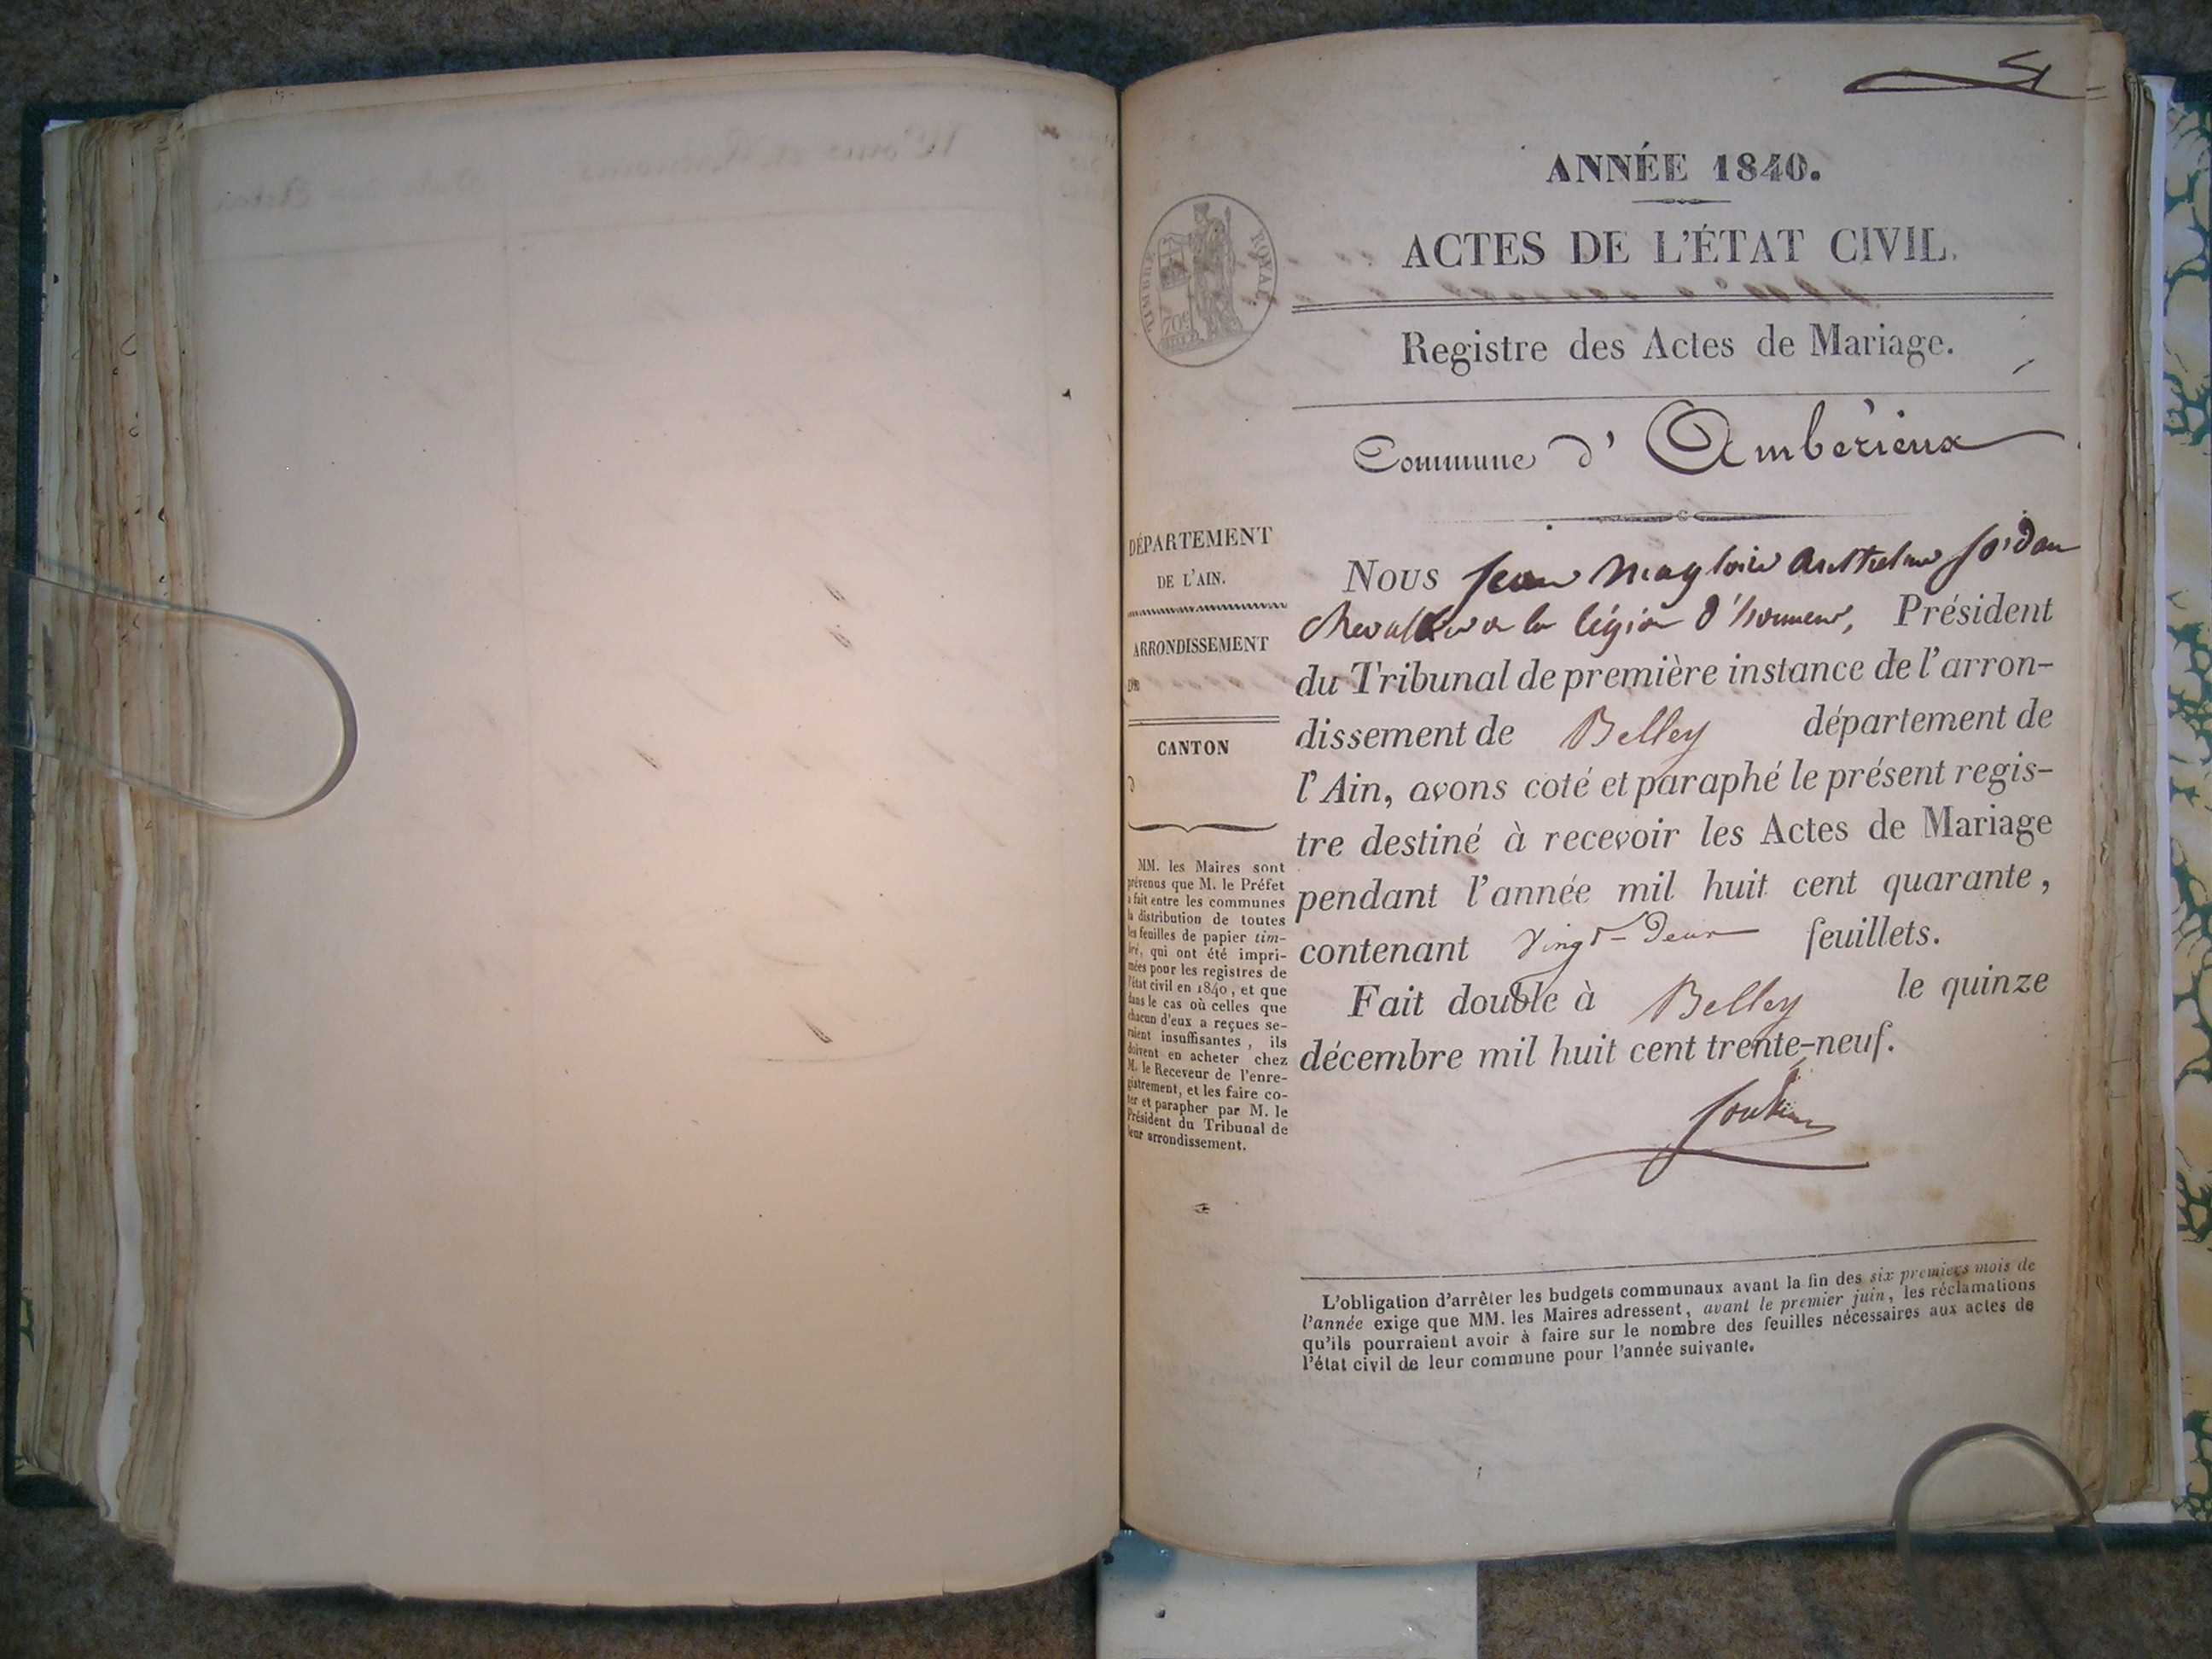 ANNÉE 1840.
ACTES DE L'ÉTAT CIVIL.
TIMBRE ROYAL
70c
Registre des Actes de Mariage.
Commune d' Ambérieux
DÉPARTEMENT
DE L'AIN.
ARRONDISSEMENT
DE
CANTON
d
MM. les Maires sont
prévenus que M. le Préfet
a fait entre les communes
la distribution de toutes
les feuilles de papier tim-
bré, qui ont été impri-
mées pour les registres de
l'état civil en 1840, et que
dans le cas où celles que
chacun d'eux a reçues se-
raient insuffisantes, ils
doivent en acheter chez
M. le Receveur de l'enre-
gistrement, et les faire co-
ter et parapher par M. le
Président du Tribunal de
leur arrondissement.
Nous Jean Magloire Anthelme Jordan
Chevalier de la légion d'honneur, Président
du Tribunal de première instance de l'arron-
dissement de Belley département de
l'Ain, avons coté et paraphé le présent regis-
tre destiné à recevoir les Actes de Mariage
pendant l'année mil huit cent quarante,
contenant Vingt-Deux feuillets.
Fait double à Belley le quinze
décembre mil huit cent trente-neuf.
L'obligation d'arrêter les budgets communaux avant la fin des six premiers mois de
l'année exige que MM. les Maires adressent, avant le premier juin, les réclamations
qu'ils pourraient avoir à faire sur le nombre des feuilles nécessaires aux actes de
l'état civil de leur commune pour l'année suivante.